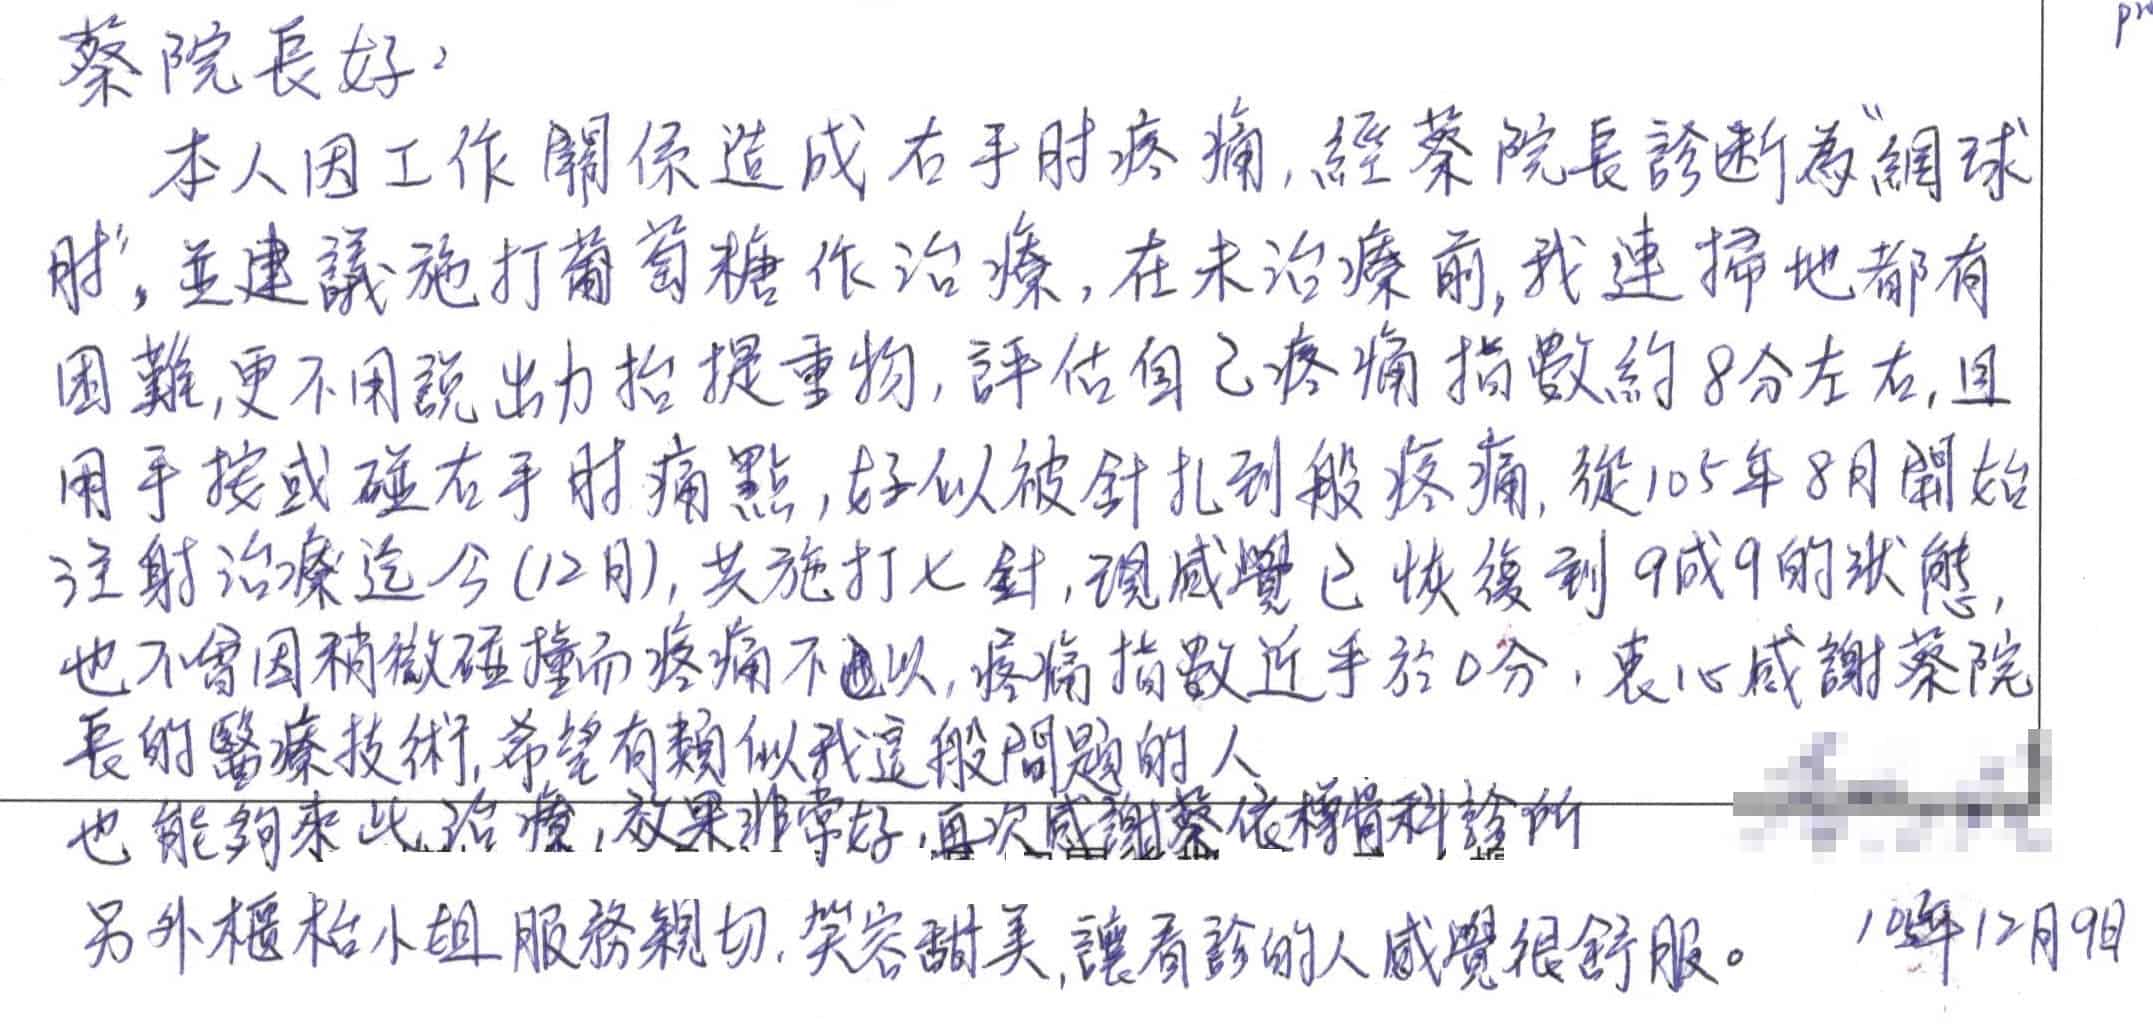 蔡院長好，
本人因工作關係造成右手肘疼痛，經蔡院長診斷為"網球
肘"，並建議施打葡萄糖作治療，在未治療前，我連掃地都有
困難，更不用說出力抬提重物，評估自己疼痛指數約8分左右，且
用手按或碰右手肘痛點，好似被針扎到般疼痛，從105年8月開始
注射治療迄今(12月)，共施打七針，現感覺已恢復到9成9的狀態，
也不會因稍微碰撞而疼痛不已，疼痛指數近乎於0分，衷心感謝蔡院
長的醫療技術，希望有類似我這般問題的人
也能夠來此治療，效果非常好，再次感謝蔡依樽骨科診所
另外櫃枱小姐服務親切，笑容甜美，讓看診的人感覺很舒服。
105年12月9日